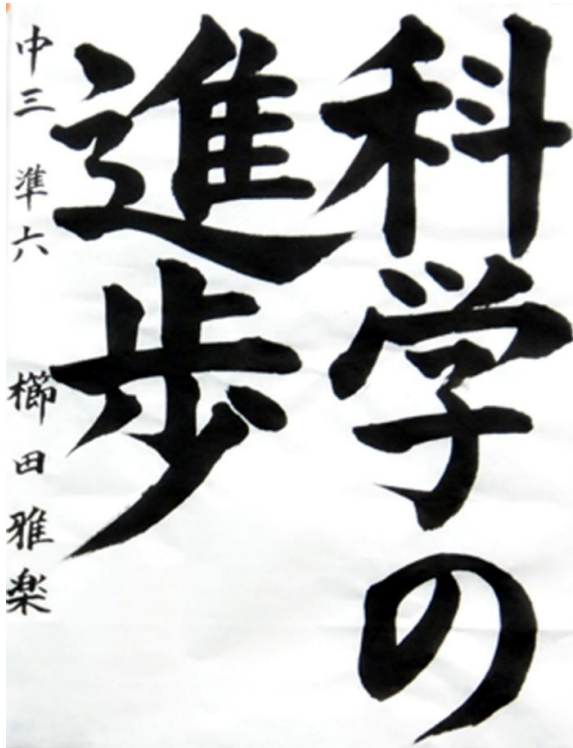 科学の
進歩
中三 準六 櫛田雅楽